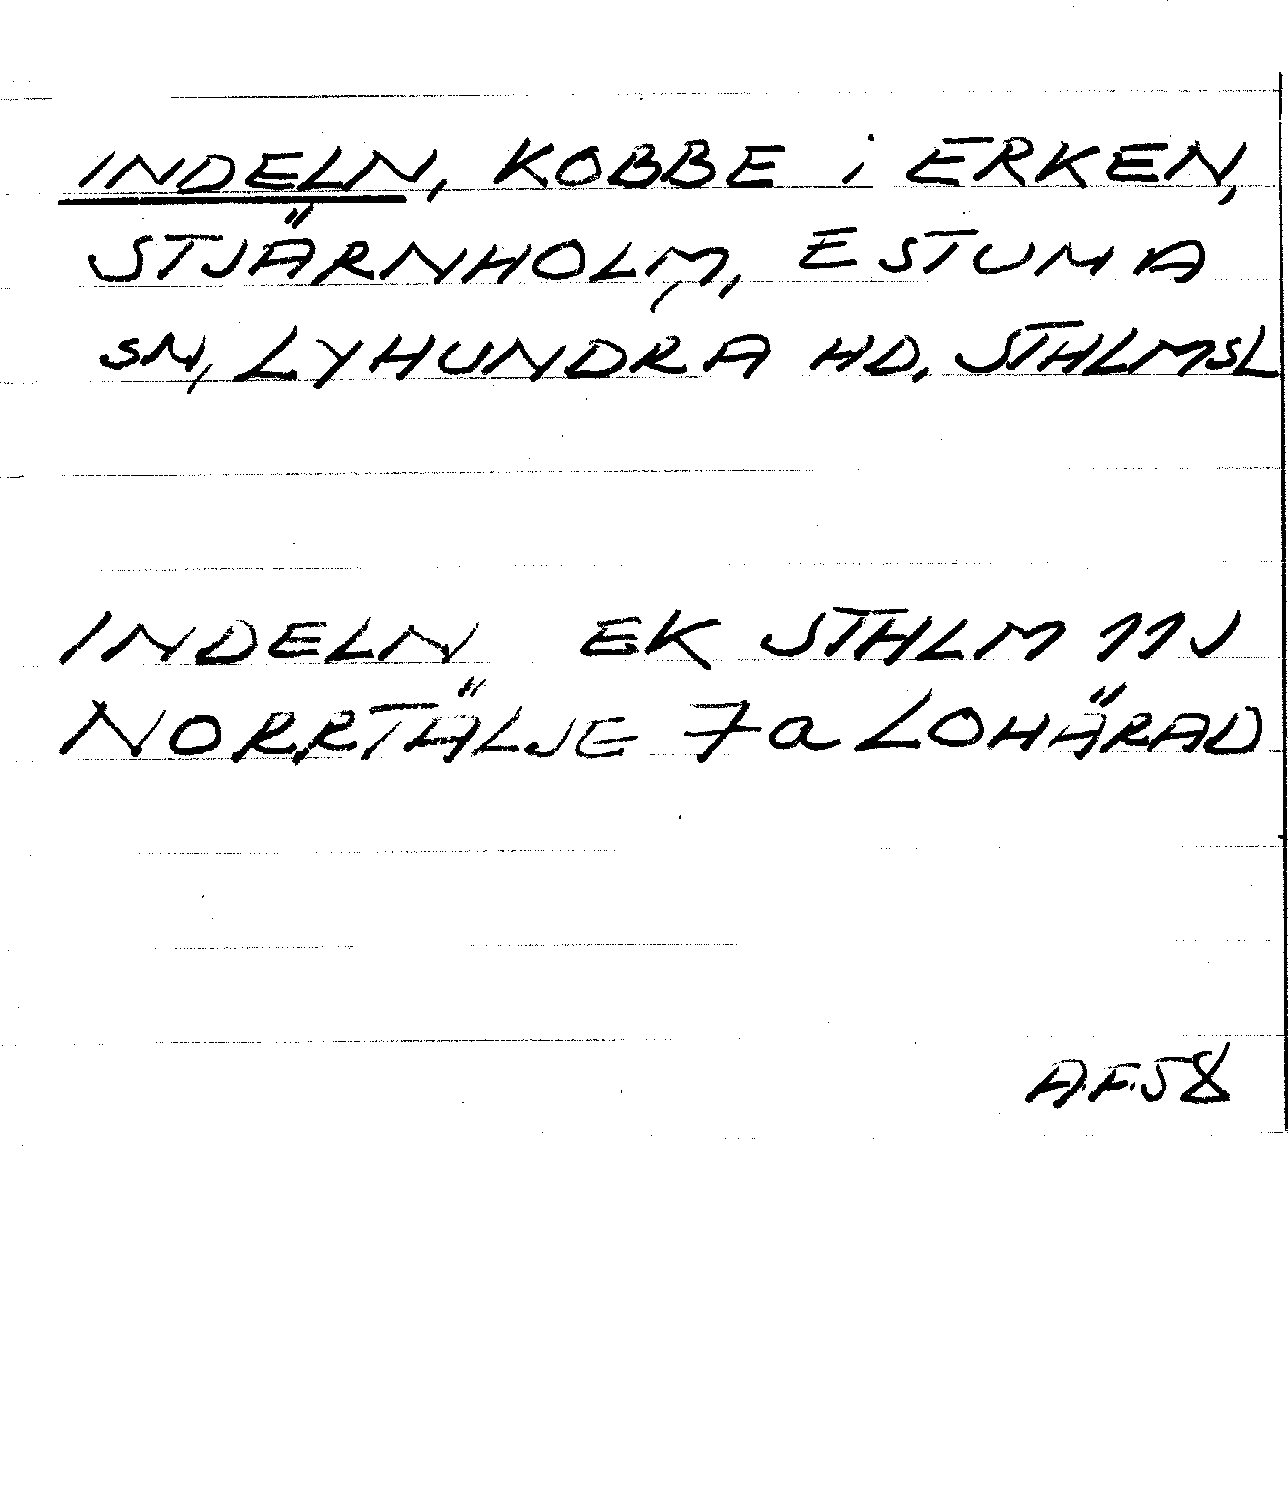 INDELN, KOBBE i ERKEN,
STJÄRNHOLM, ESTUNA
SN, LYHUNDRA HD, STHLMSL
INDELN EK STHLM 11J
NORRTÄLJE 7a LOHÄRAD
A.F.58